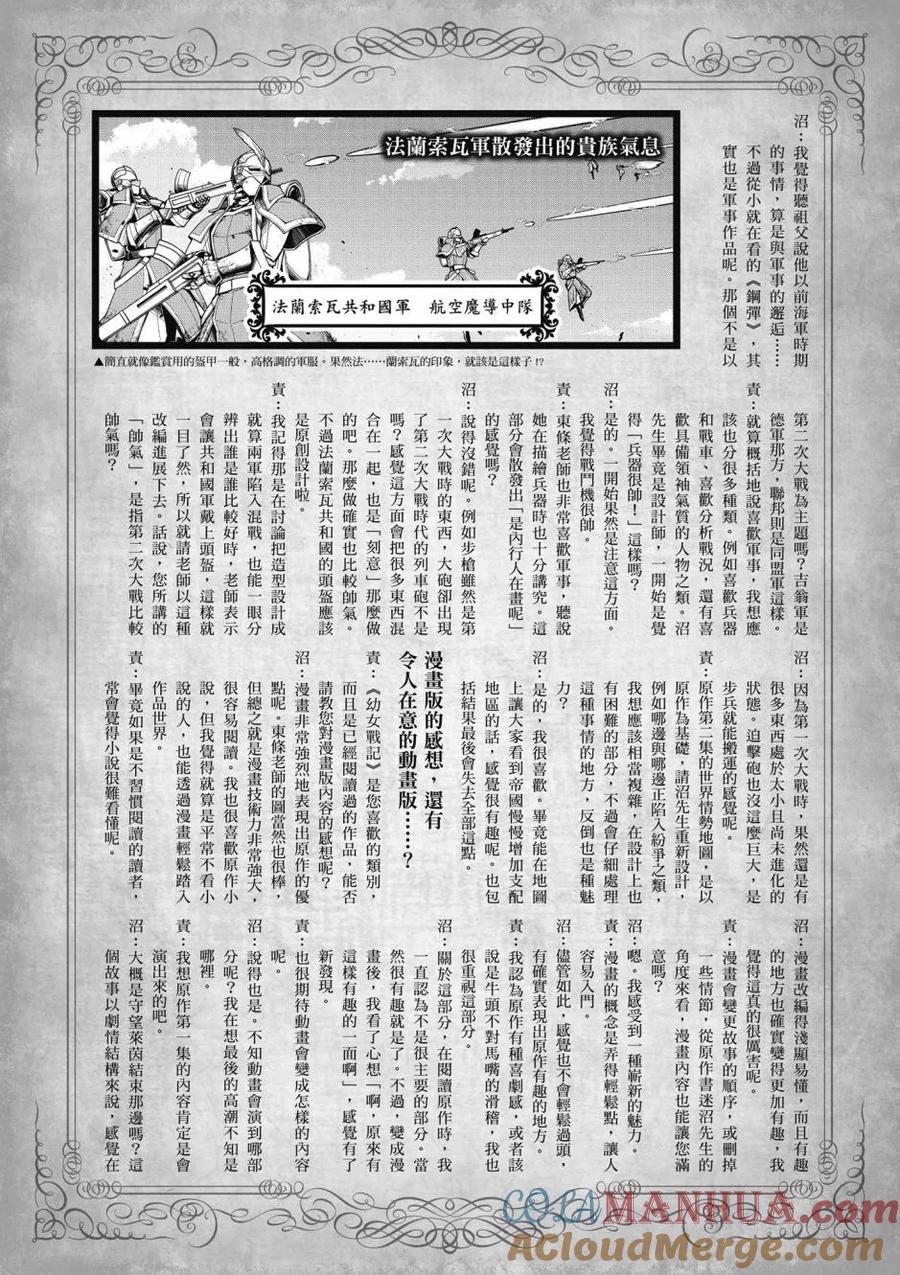 沼：我覺得聽祖父說他以前海軍時期
的事情，算是與軍事的邂逅……
不過從小就在看的《鋼彈》，其
實也是軍事作品呢。那個不是以
法蘭索瓦軍散發出的貴族氣息
法蘭索瓦共和國軍　航空魔導中隊
▲簡直就像鑑賞用的盔甲一般，高格調的軍服。果然法……蘭索瓦的印象，就該是這樣子!?
第二次大戰為主題嗎？吉翁軍是
德軍那方，聯邦則是同盟軍這樣。
責：就算概括地說喜歡軍事，我想應
該也分很多種類。例如喜歡兵器
和戰車、喜歡分析戰況，還有喜
歡具備領袖氣質的人物之類。沼
先生畢竟是設計師，一開始是覺
得「兵器很帥！」這樣嗎？
沼：是的。一開始果然是注意這方面。
我覺得戰鬥機很帥。
責：東條老師也非常喜歡軍事，聽說
她在描繪兵器時也十分講究。這
部分會散發出「是內行人在畫呢」
的感覺嗎？
沼：說得沒錯呢。例如步槍雖然是第
一次大戰時的東西，大砲卻出現
了第二次大戰時代的列車砲不是
嗎？感覺這方面會把很多東西混
合在一起，也是「刻意」那麼做
的吧。那麼做確實也比較帥氣。
不過法蘭索瓦共和國的頭盔應該
是原創設計啦。
責：我記得那是在討論把造型設計成
就算兩軍陷入混戰，也能一眼分
辨出誰是誰比較好時，老師表示
會讓共和國軍戴上頭盔，這樣就
一目了然，所以就請老師以這種
改編進展下去。話說，您所講的
「帥氣」，是指第二次大戰比較
帥氣嗎？
沼：因為第一次大戰時，果然還是有
很多東西處於太小且尚未進化的
狀態。迫擊砲也沒這麼巨大，是
步兵就能搬運的感覺呢。
責：原作第二集的世界情勢地圖，是以
原作為基礎，請沼先生重新設計，
例如哪邊與哪邊正陷入紛爭之類，
我想應該相當複雜，在設計上也
有困難的部分，不過會仔細處理
這種事情的地方，反倒也是種魅
力？
沼：是的，我很喜歡。畢竟能在地圖
上讓大家看到帝國慢慢增加支配
地區的話，感覺很有趣呢。也包
括結果最後會失去全部這點。
漫畫版的感想，還有
令人在意的動畫版……？
責：《幼女戰記》是您喜歡的類別，
而且是已經閱讀過的作品，能否
請教您對漫畫版內容的感想呢？
沼：漫畫非常強烈地表現出原作的優
點呢。東條老師的圖當然也很棒，
但總之就是漫畫技術力非常強大，
很容易閱讀。我也很喜歡原作小
說，但我覺得就算是平常不看小
說的人，也能透過漫畫輕鬆踏入
作品世界。
責：畢竟如果是不習慣閱讀的讀者，
常會覺得小說很難看懂呢。
沼：漫畫改編得淺顯易懂，而且有趣
的地方也確實變得更加有趣，我
覺得這真的很厲害呢。
責：漫畫會變更故事的順序，或刪掉
一些情節，從原作書迷沼先生的
角度來看，漫畫內容也能讓您滿
意嗎？
沼：嗯。我感受到一種嶄新的魅力。
責：漫畫的概念是弄得輕鬆點，讓人
容易入門。
沼：儘管如此，感覺也不會輕鬆過頭，
有確實表現出原作有趣的地方。
責：我認為原作有種喜劇感，或者該
說是牛頭不對馬嘴的滑稽，我也
很重視這部分。
沼：關於這部分，在閱讀原作時，我
一直認為不是很主要的部分。當
然很有趣就是了。不過，變成漫
畫後，我看了心想「啊，原來有
這樣有趣的一面啊」，感覺有了
新發現。
責：也很期待動畫會變成怎樣的內容
呢。
沼：說得也是。不知動畫會演到哪部
分呢？我在想最後的高潮不知是
哪裡。
責：我想原作第一集的內容肯定是會
演出來的吧。
沼：大概是守望萊茵結束那邊嗎？這
個故事以劇情結構來說，感覺在
COLAMANHUA.com
AcloudMerge.com